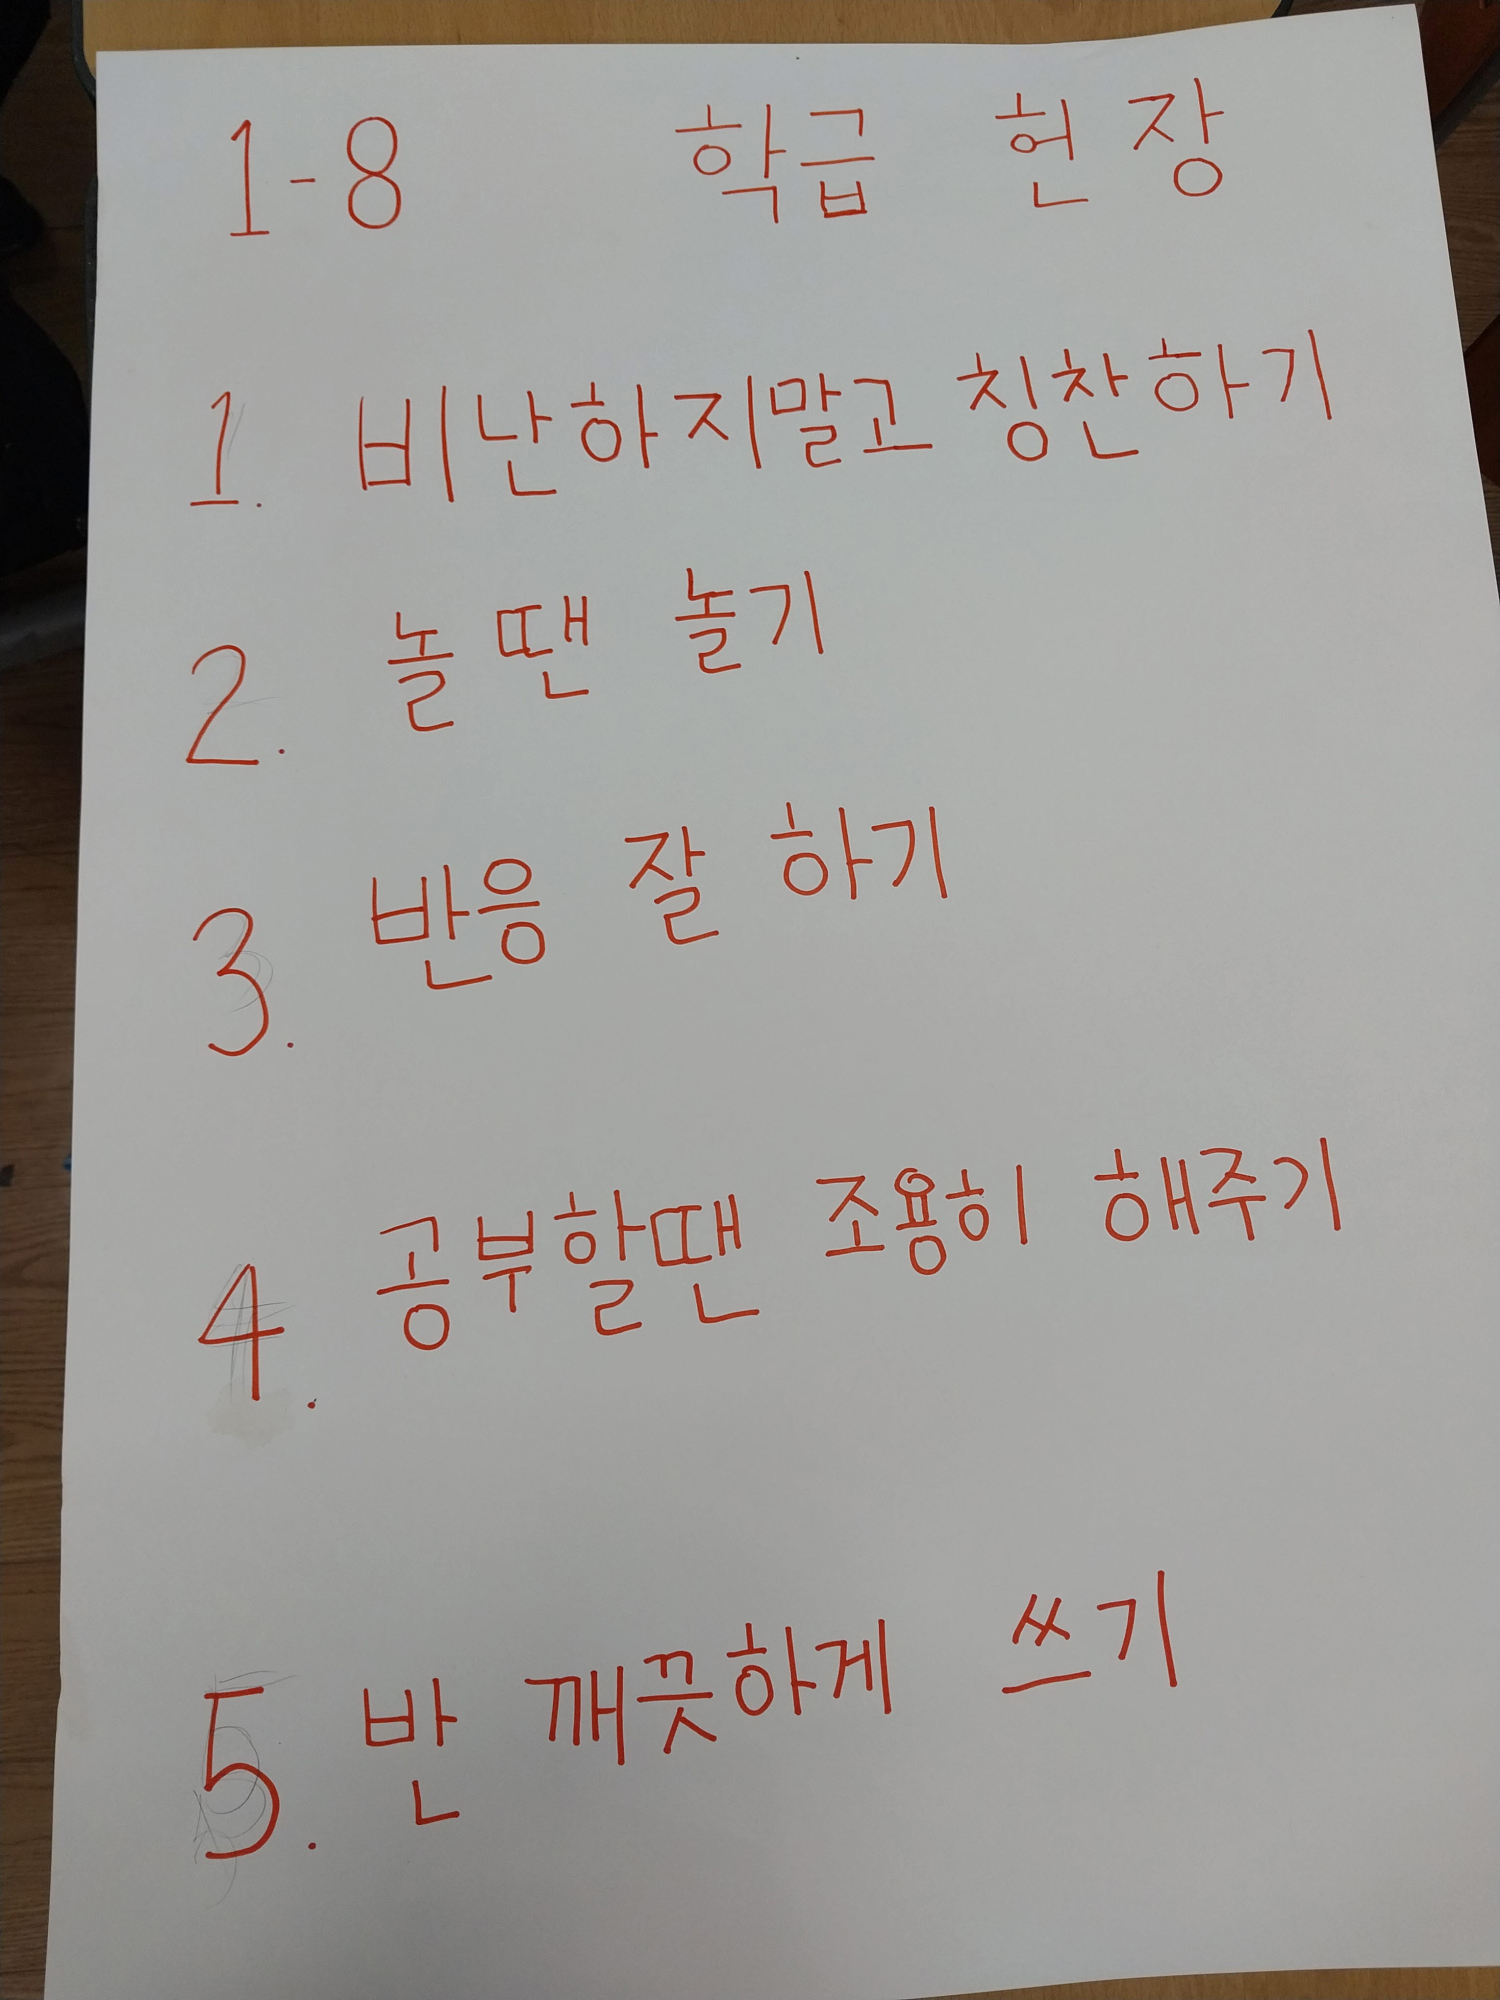 1-8 학급 헌장
1. 비난하지말고 칭찬하기
2. 놀 땐 놀기
3. 반응 잘 하기
4. 공부할땐 조용히 해주기
5. 반 깨끗하게 쓰기